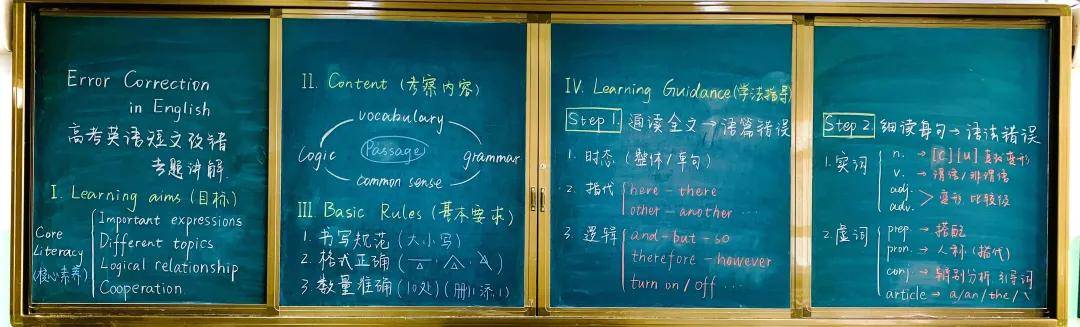 Error Correction
in English
高考英语短文改错
专题讲解
I. Learning aims (目标)
Core Literacy (核心素养)
Important expressions
Different topics
Logical relationship
Cooperation
II. Content (考察内容)
vocabulary
logic
Passage
grammar
common sense
III. Basic Rules (基本要求)
1. 书写规范 (大小写)
2. 格式正确
3. 数量准确 (10处) (删1 添1)
IV. Learning Guidance (学法指导)
Step 1. 通读全文→语篇错误
1. 时态 (整体/单句)
2. 指代
here - there
other - another ...
3. 逻辑
and - but - so
therefore - however
turn on / off ...
Step 2. 细读每句→语法错误
1. 实词
n. → [c] [u] 变形
v. → 谓语/非谓语
adj.
adv. > 变形 比较级
2. 虚词
prep. → 搭配
pron. → 人称 (指代)
conj. → 辨别分析 引导词
article → a/an/the/\